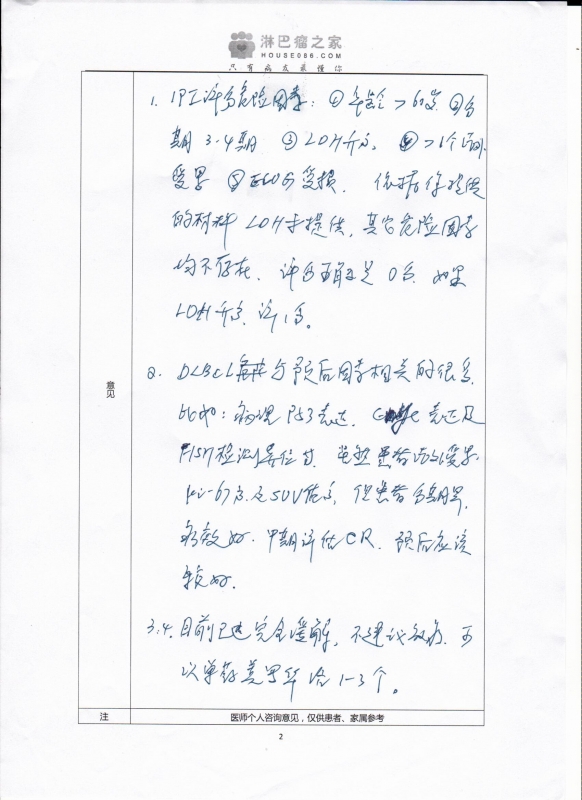 淋巴瘤之家
HOUSE086.COM
只有病友最懂你
1. IPI评分危险因素：①年龄>60岁 ②分
期3-4期 ③LDH升高， ④>1个结外
受累 ⑤ECOG受损. 依据你提供
的材料 LDH未提供，其它危险因素
均不存在. 评分应该是0分. 如果
LDH升高，评1分。
2. DLBCL 与预后因素相关的很多.
比如：病理P53表达. C-myc表达及
FISH检测异位等. 虽然患者 受累.
ki-67高及SUV值高，但患者分期早.
疗效好. 中期评估CR. 预后应该
较好.
3.4. 目前已达完全缓解，不建议放疗. 可
以单药美罗华治1-3个。
意见
注
医师个人咨询意见，仅供患者、家属参考
2